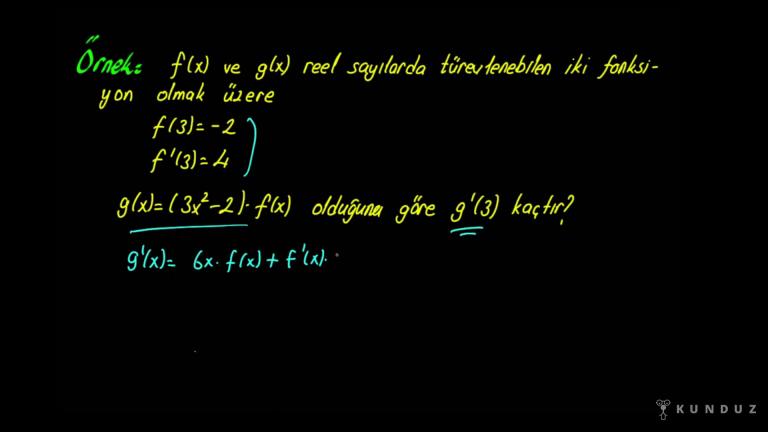 Örnek: f(x) ve g(x) reel sayılarda türevlenebilen iki fonksi-
yon olmak üzere
f(3)=-2
f'(3)=4
g(x)=(3x²-2)·f(x) olduğuna göre g'(3) kaçtır?
g'(x)= 6x·f(x)+f'(x)·
KUNDUZ